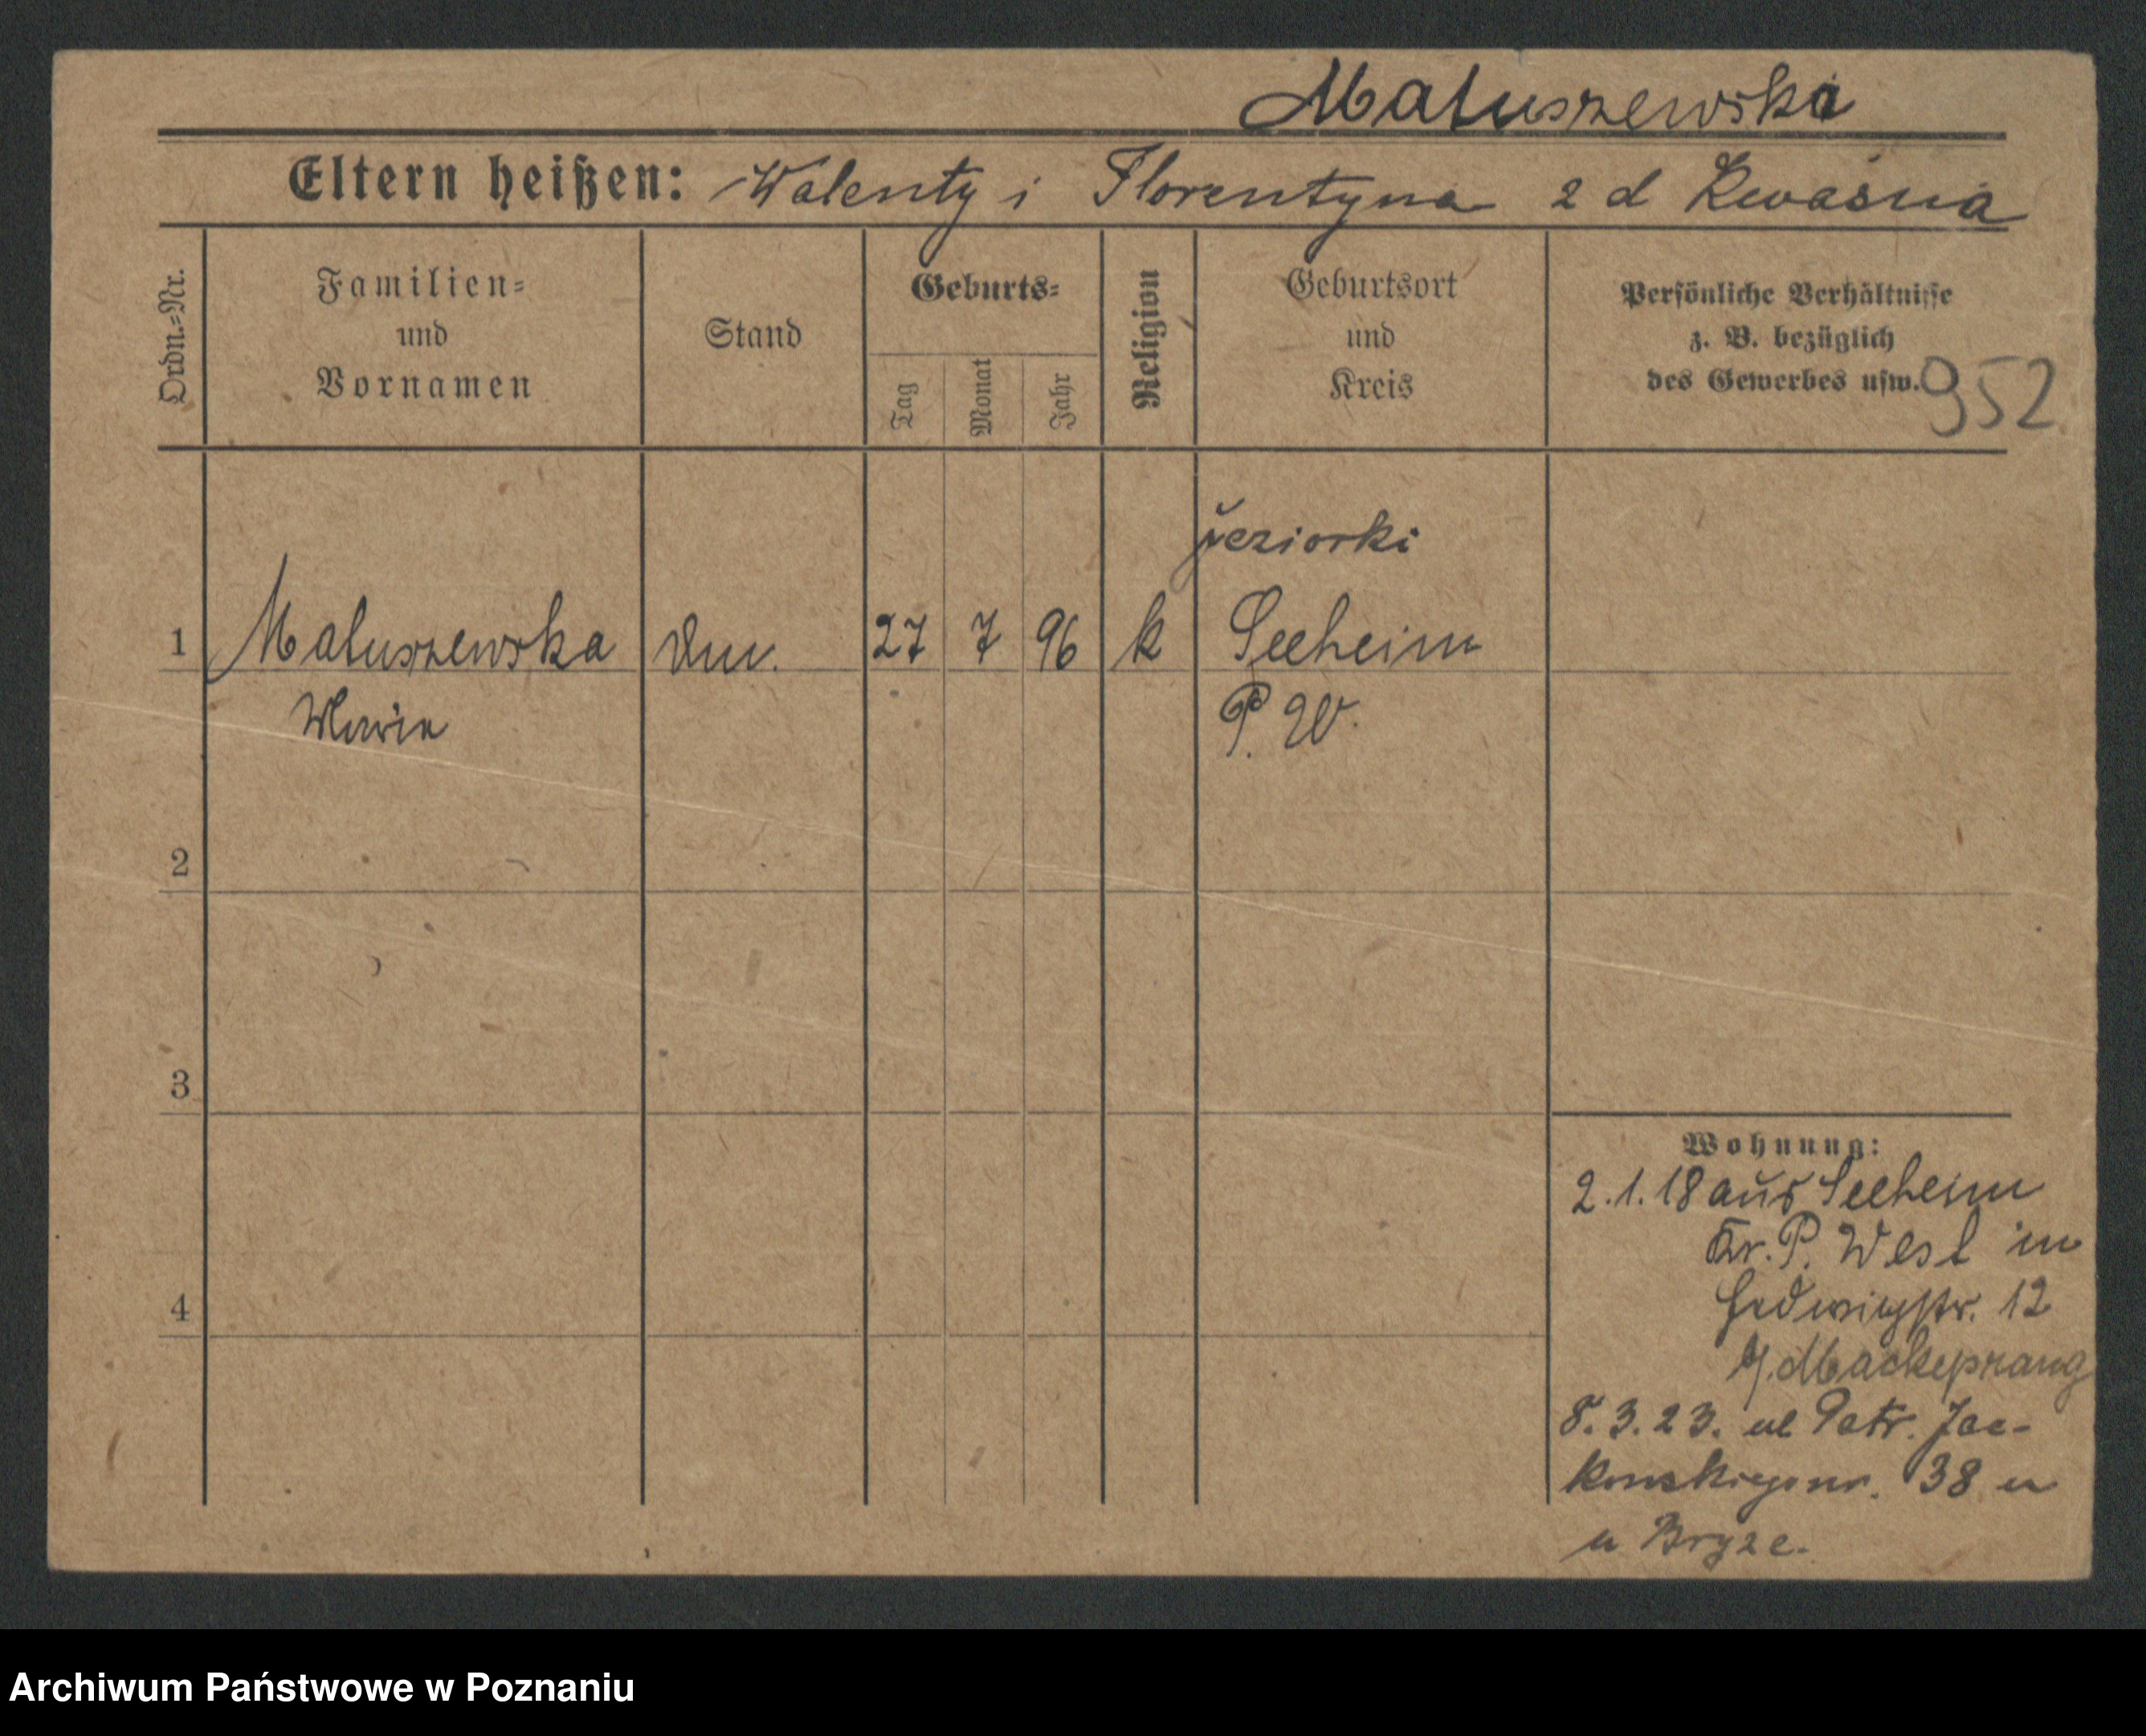 Matuszewska
Eltern heißen: Walenty i Florentyna z d Kwaśna
Ordn.=Nr.
Familien=
und
Vornamen
Stand
Geburts=
Tag
Monat
Jahr
Religion
Geburtsort
und
Kreis
Persönliche Verhältnisse
z. B. bezüglich
des Gewerbes usw.
952
Jeziorki
1 Matuszewska 27 7 96 k Seeheim
Maria P. W.
2
3
4
Wohnung:
2.1.18 aus Seeheim
Kr. P. West in
Hedwigstr. 12
b/. Mackeprang
8.3.23. ul Patr. Jac-
kowskiego nr. 38
u Bryze.
Archiwum Państwowe w Poznaniu